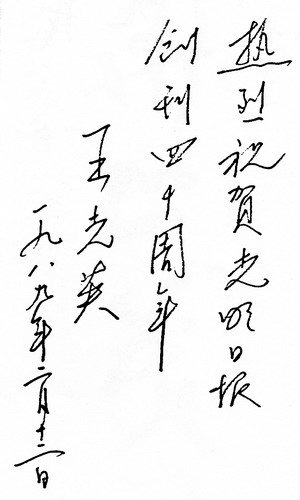 热烈祝贺光明日报
创刊四十周年
王光英
一九八九年二月十二日